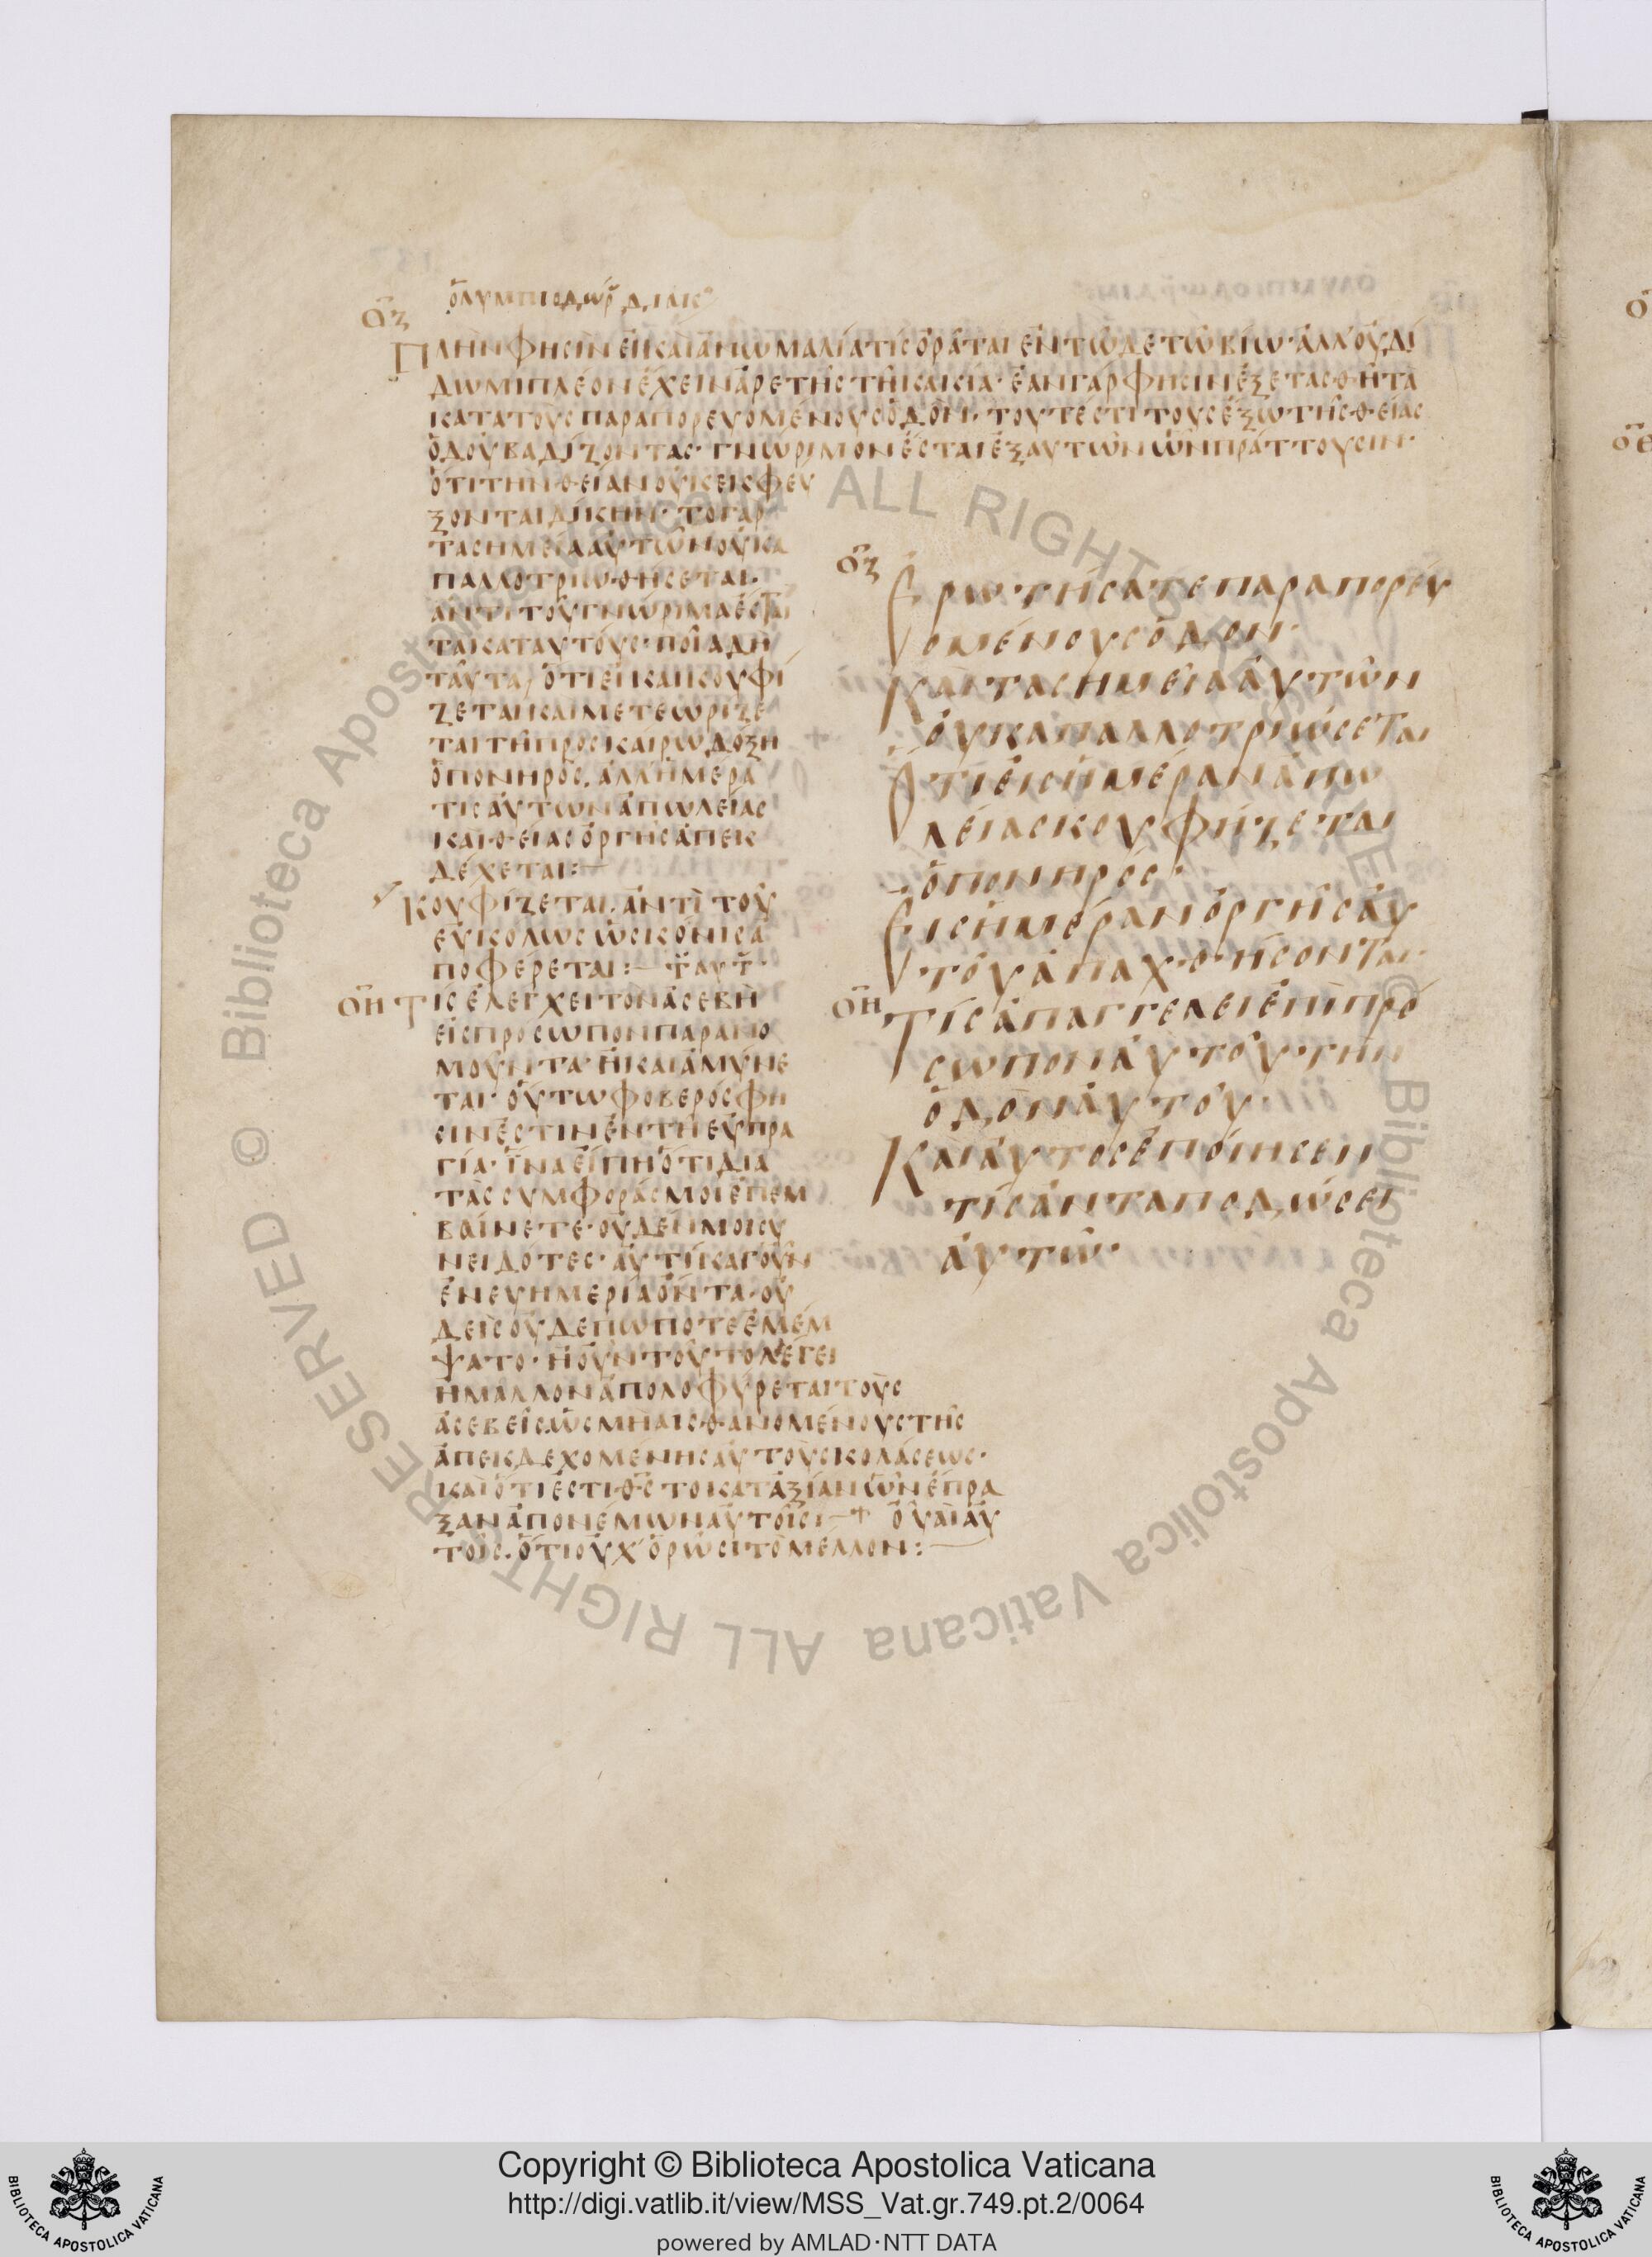 ὀλυμπιοδώρ διακο
οζ
Πλὴν φησὶν εἰ καὶ ἀνωμαλία τίς ὁρᾶται ἐν τῶδε τῶ βίω· ἀλλ' οὐ δί
δωμι πλέον ἔχειν ἀρετῆς τῆ κακία· ἐὰν γάρ φησιν ἐξετασθῆ τὰ
κατὰ τοὺς παραπορευομένους ὁδόν· τουτέστι τοὺς ἔξω τῆς θείας
ὁδοῦ βαδίζοντας· γνώριμον ἔσται ἐξ αὐτῶν ὧν πράττουσιν·
ὅτι τὴν θείαν οὐκ ἐκφεύ
ξονται δίκην· τὸ γὰρ
τὰ σημεῖα αὐτῶν οὐκ ἀ
παλλοτριωθήσεται·
ἀντὶ τοῦ γνώριμα ἔσται
τὰ κατ' αὐτούς· ποῖα δὴ
ταῦτα; ὅτι εἰ καὶ κουφί
ζεται καὶ μετεωρίζε
ται τῆ προσκαίρω δόξη
ὁ πονηρός. ἀλλ' ἡμέρα
τις αὐτὸν ἀπωλείας
καὶ θείας ὀργῆς ἀπεκ
δέχεται:—
Κουφίζεται. ἀντὶ τοῦ
εὐκόλως ὡς κόνις ἀ
ποφέρεται:— τοῦ αυτ·
οη Τίς ἐλέγχει τὸν ἀσεβῆ
εἰς πρόσωπον παρανο
μοῦντα· ἢ καὶ ἀμύνε
ται· οὕτω φοβερός φη
σιν ἐστὶν ἐν τῆ εὐπρα
γία· ἵνα εἴπη ὅτι διὰ
τὰς συμφοράς μοι ἐπεμ
βαίνετε· οὐδέν μοι συ
νειδότες· αὐτίκα γοῦν
ἐν εὐημερία ὄντα· οὐ
δεὶς οὐδεπώποτε ἐμέμ
ψατο· ἢ οὖν τοῦτο λέγει
ἢ μᾶλλον ἀπολοφύρεται τοὺς
ἀσεβεῖς. ὡς μὴ αἰσθανομένους τῆς
ἀπεκδεχομένης αὐτοὺς κολάσεως·
καὶ ὅτι ἐστι θς τὸ κατ' ἀξίαν ὧν ἔπρα
ξαν ἀπονέμων αὐτοῖς:— + οὐαὶ αὐ
τοῖς. ὅτι οὐχ' ὁρῶσι τὸ μέλλον:—
οζ Ἐρωτήσατε παραπορευ
ομένους ὁδόν·
Καὶ τὰ σημεῖα αὐτῶν
οὐκ ἀπαλλοτριώσεται
Ὅτι εἰς ἡμέραν ἀπω
λείας κουφίζεται
ὁ πονηρός·
Εἰς ἡμέραν ὀργῆς αὐ
τοῦ ἀπαχθήσονται·
οη Τίς ἀπαγγελεῖ ἐπὶ προ
σώπον αὐτοῦ τὴν
ὁδὸν αὐτοῦ·
Καὶ αὐτὸς ἐποίησεν
τίς ἀνταποδώσει
αὐτῶ·
Copyright © Biblioteca Apostolica Vaticana
http://digi.vatlib.it/view/MSS_Vat.gr.749.pt.2/0064
powered by AMLAD·NTT DATA
BIBLIOTECA APOSTOLICA VATICANA
BIBLIOTECA APOSTOLICA VATICANA
© Biblioteca Apostolica Vaticana ALL RIGHTS RESERVED
© Biblioteca Apostolica Vaticana ALL RIGHTS RESERVED